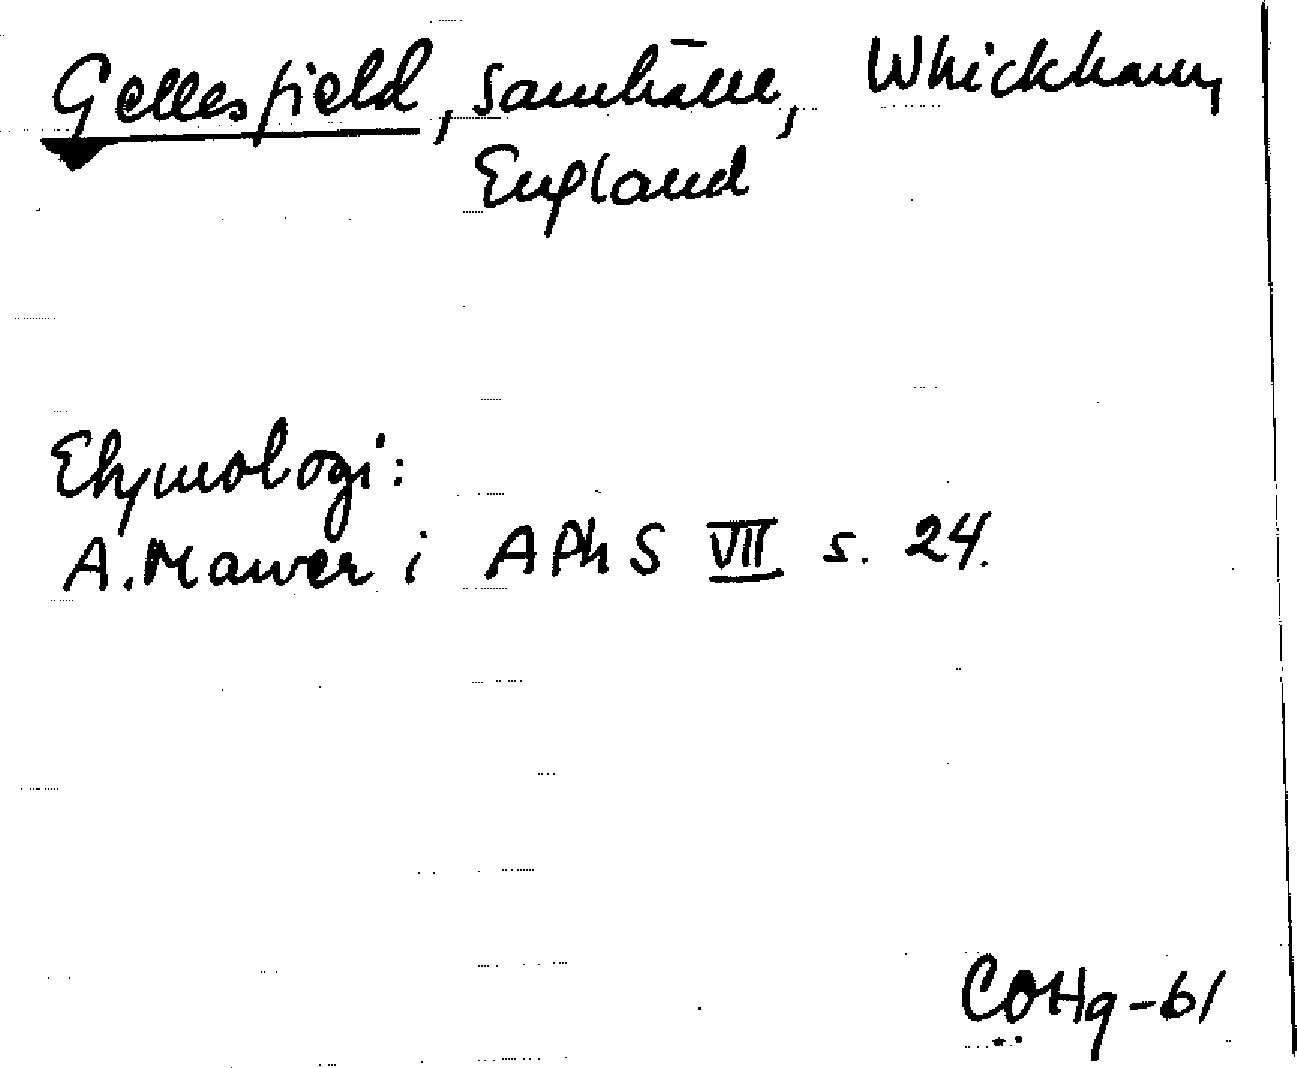 Gellesfield, samhälle, Whickham,
England
Etymologi:
A. Mawer i APhS VII s. 24.
COHg-61